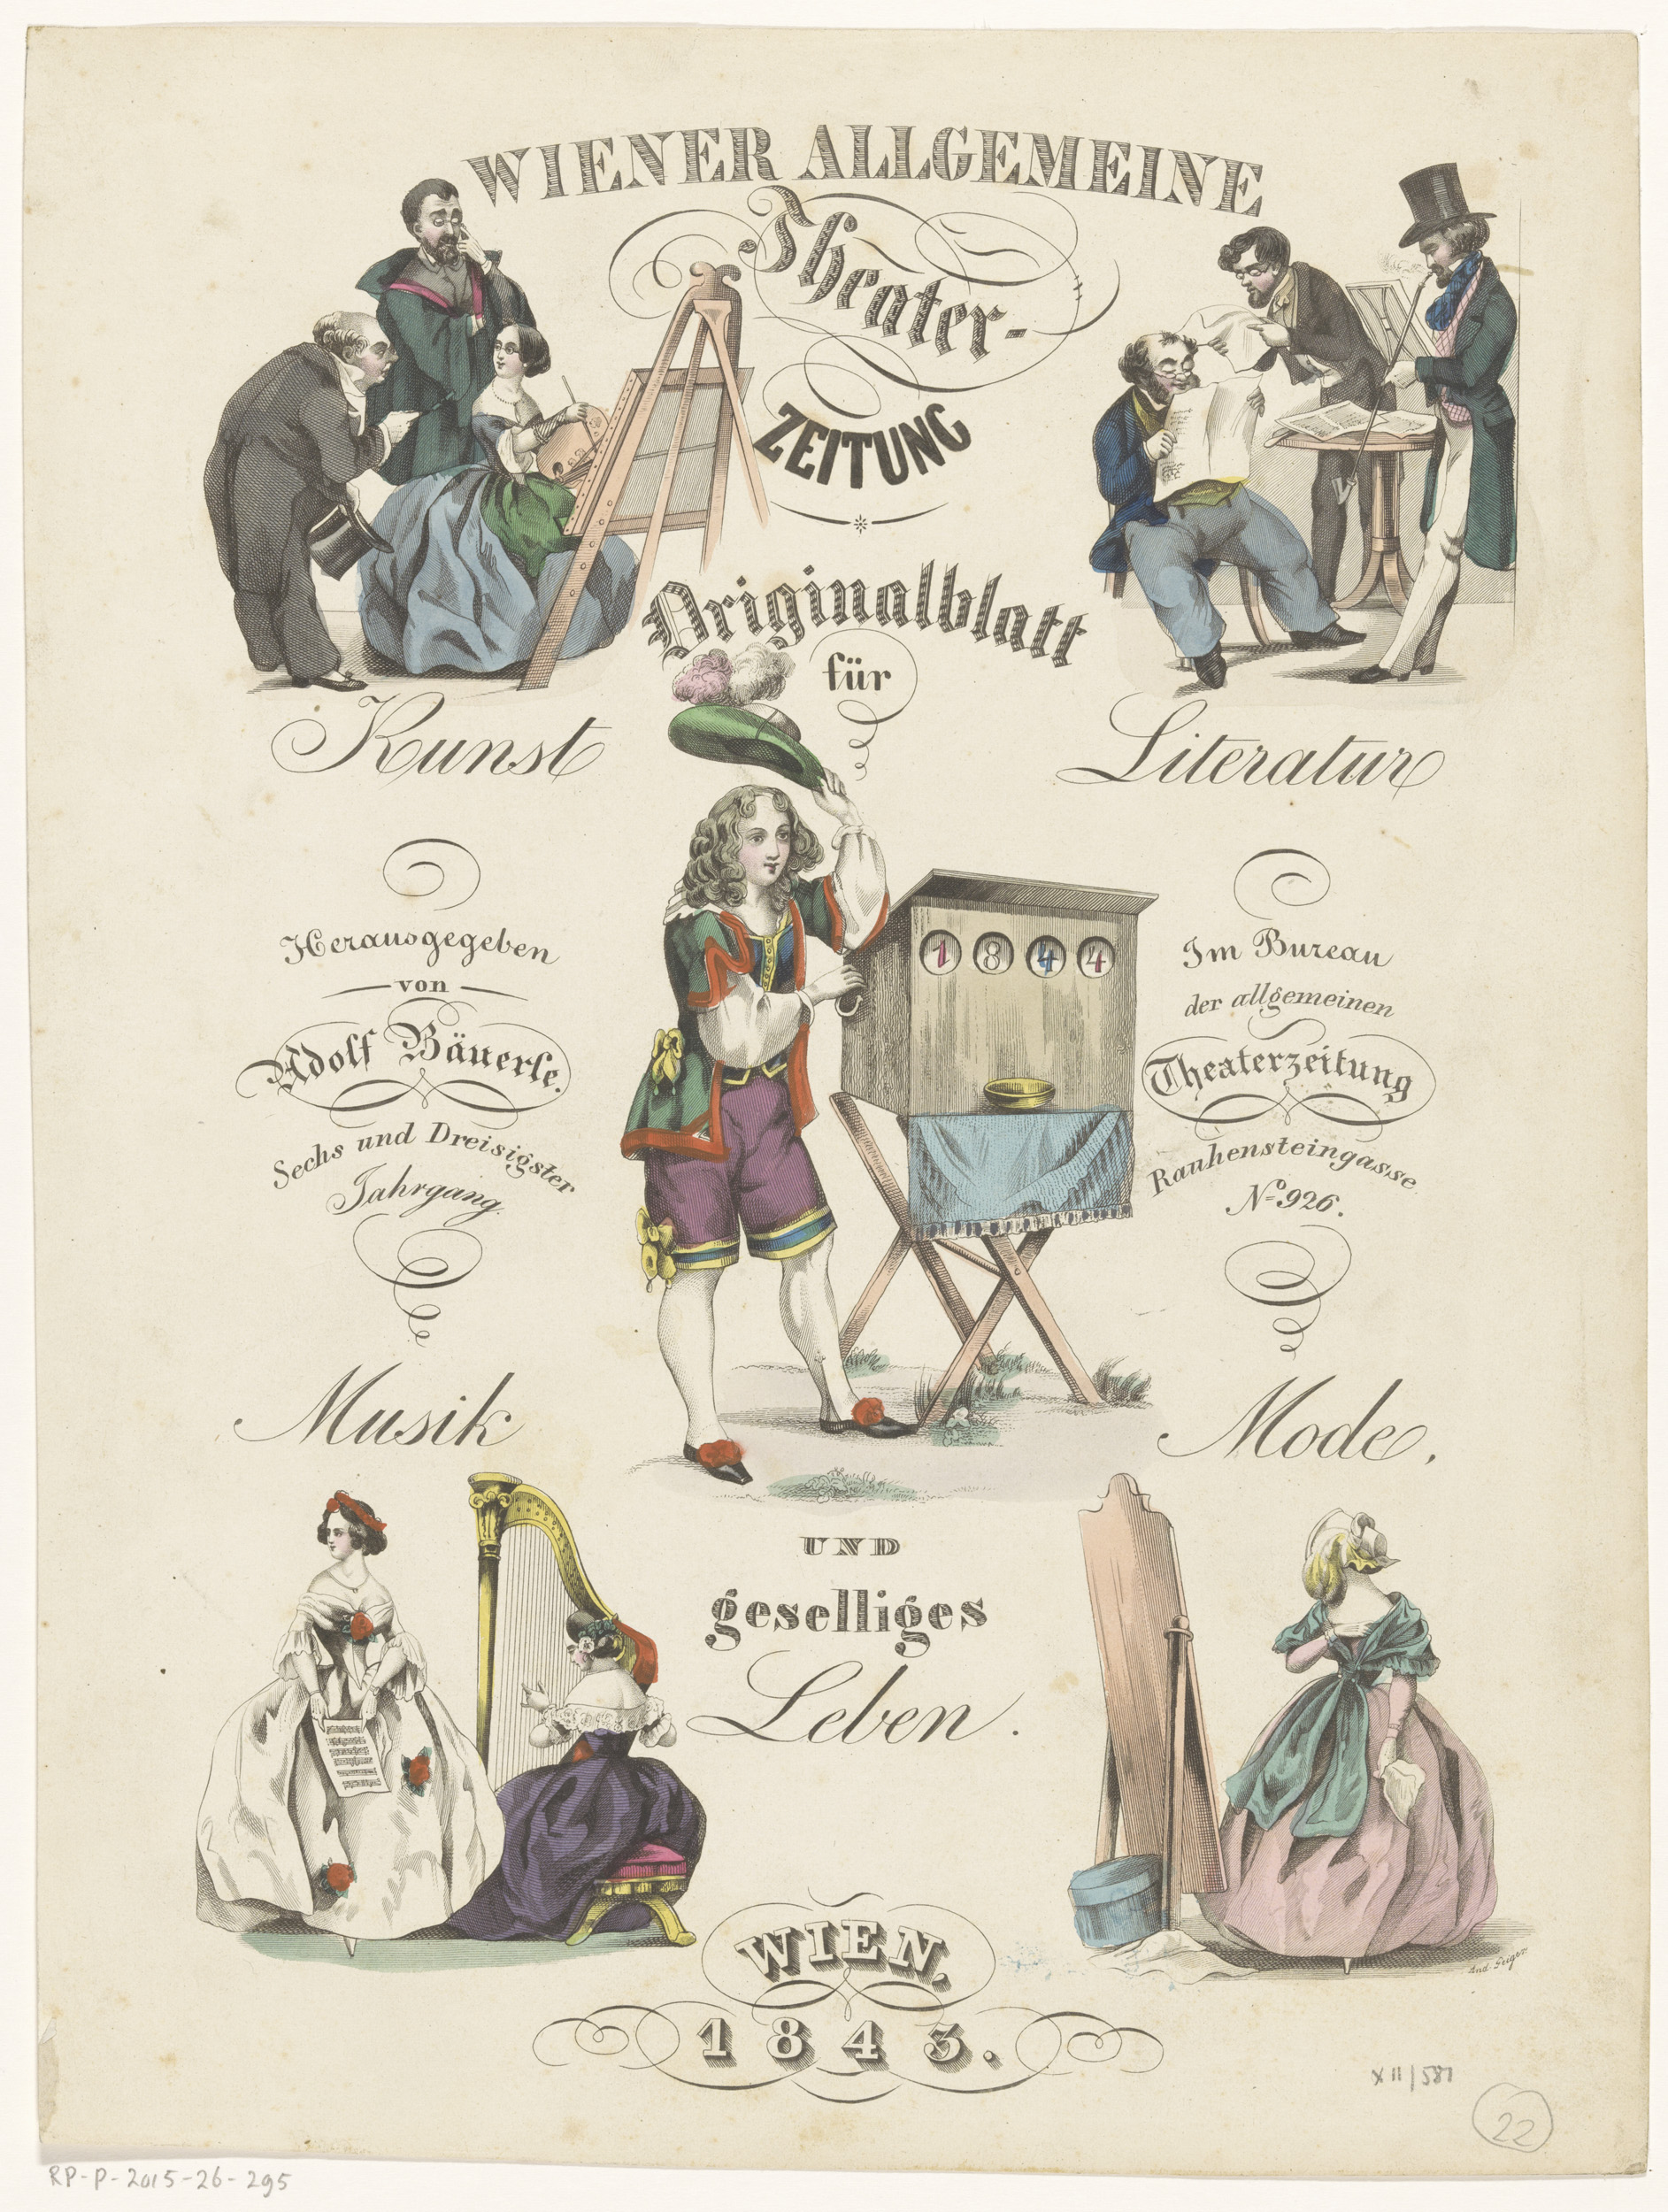 WIENER ALLGEMEINE
Theater-
ZEITUNG
Originalblatt
für
Kunst
Literatur
Herausgegeben
von
Adolf Bäuerle.
Sechs und Dreisigster
Jahrgang.
1 8 4 4
Im Bureau
der allgemeinen
Theaterzeitung
Rauhensteingasse
No 926.
Musik
Mode.
UND
geselliges
Leben.
And. Geiger
WIEN.
1843.
XII/581
22
RP-P-2015-26-295